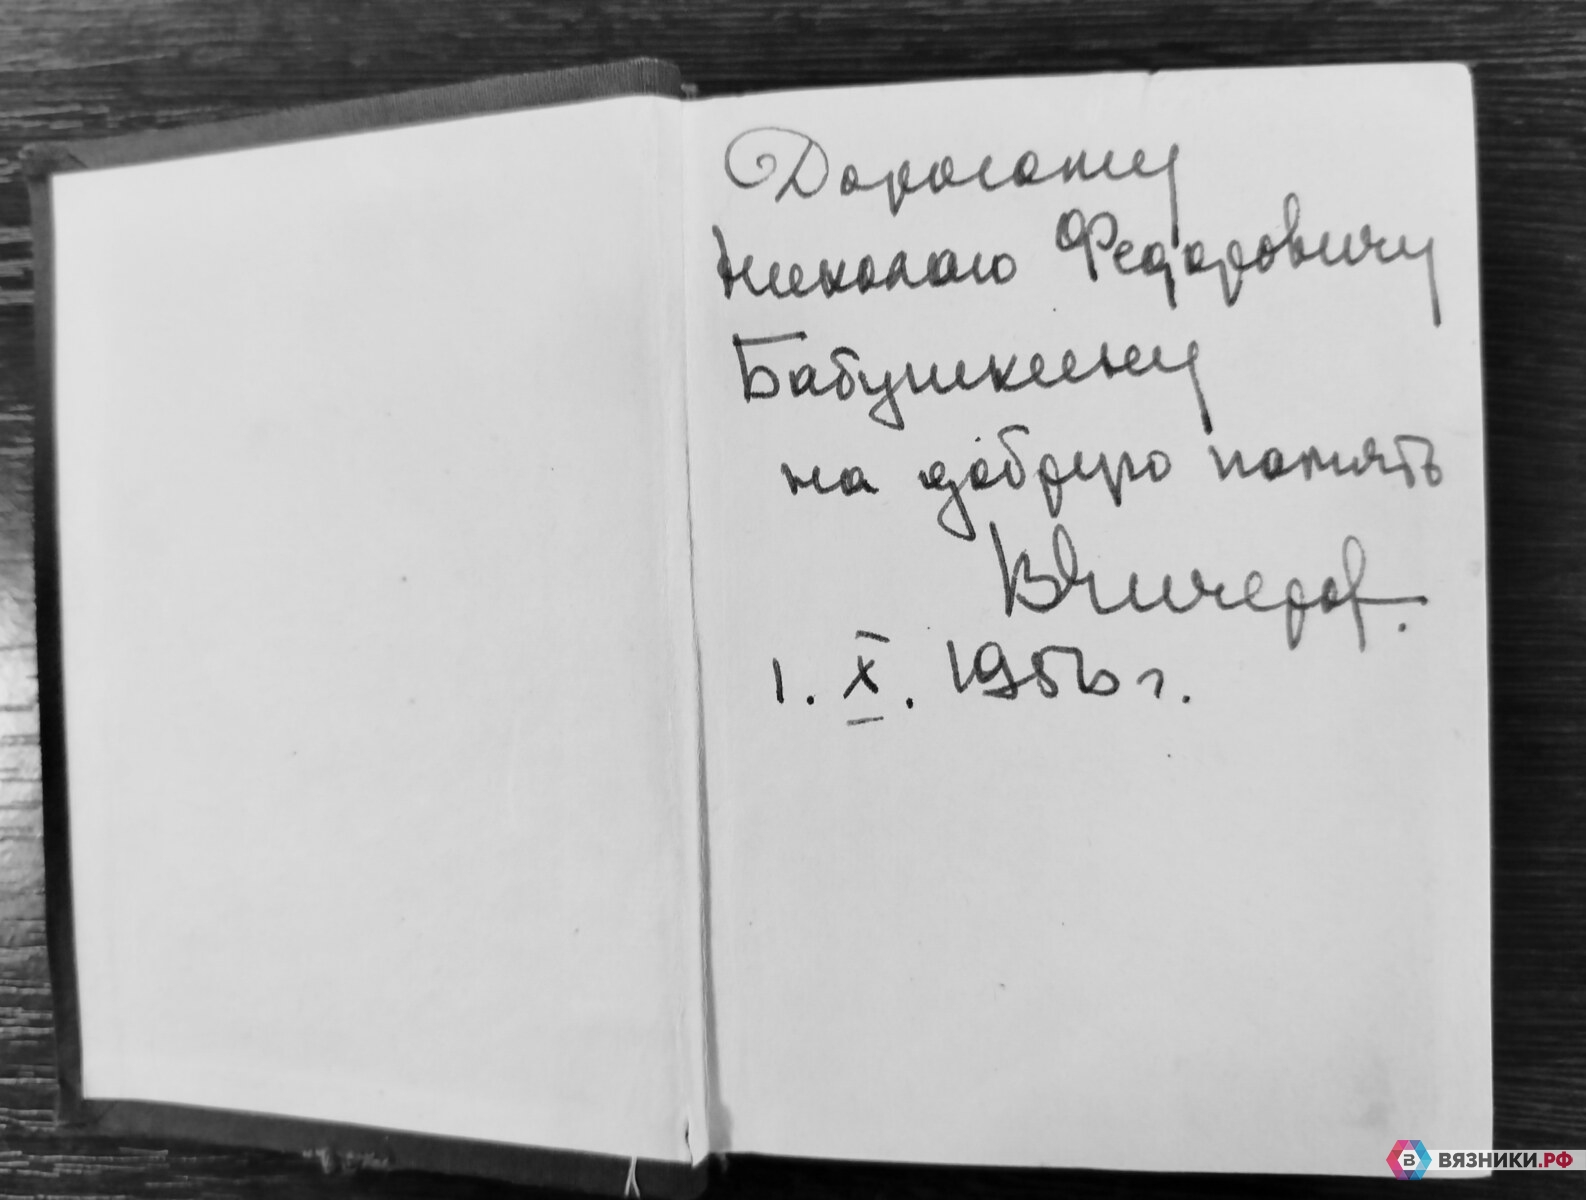 Дорогому
Николаю Федоровичу
Бабушкину
на добрую память
1. X. 1956 г.
ВЯЗНИКИ.РФ